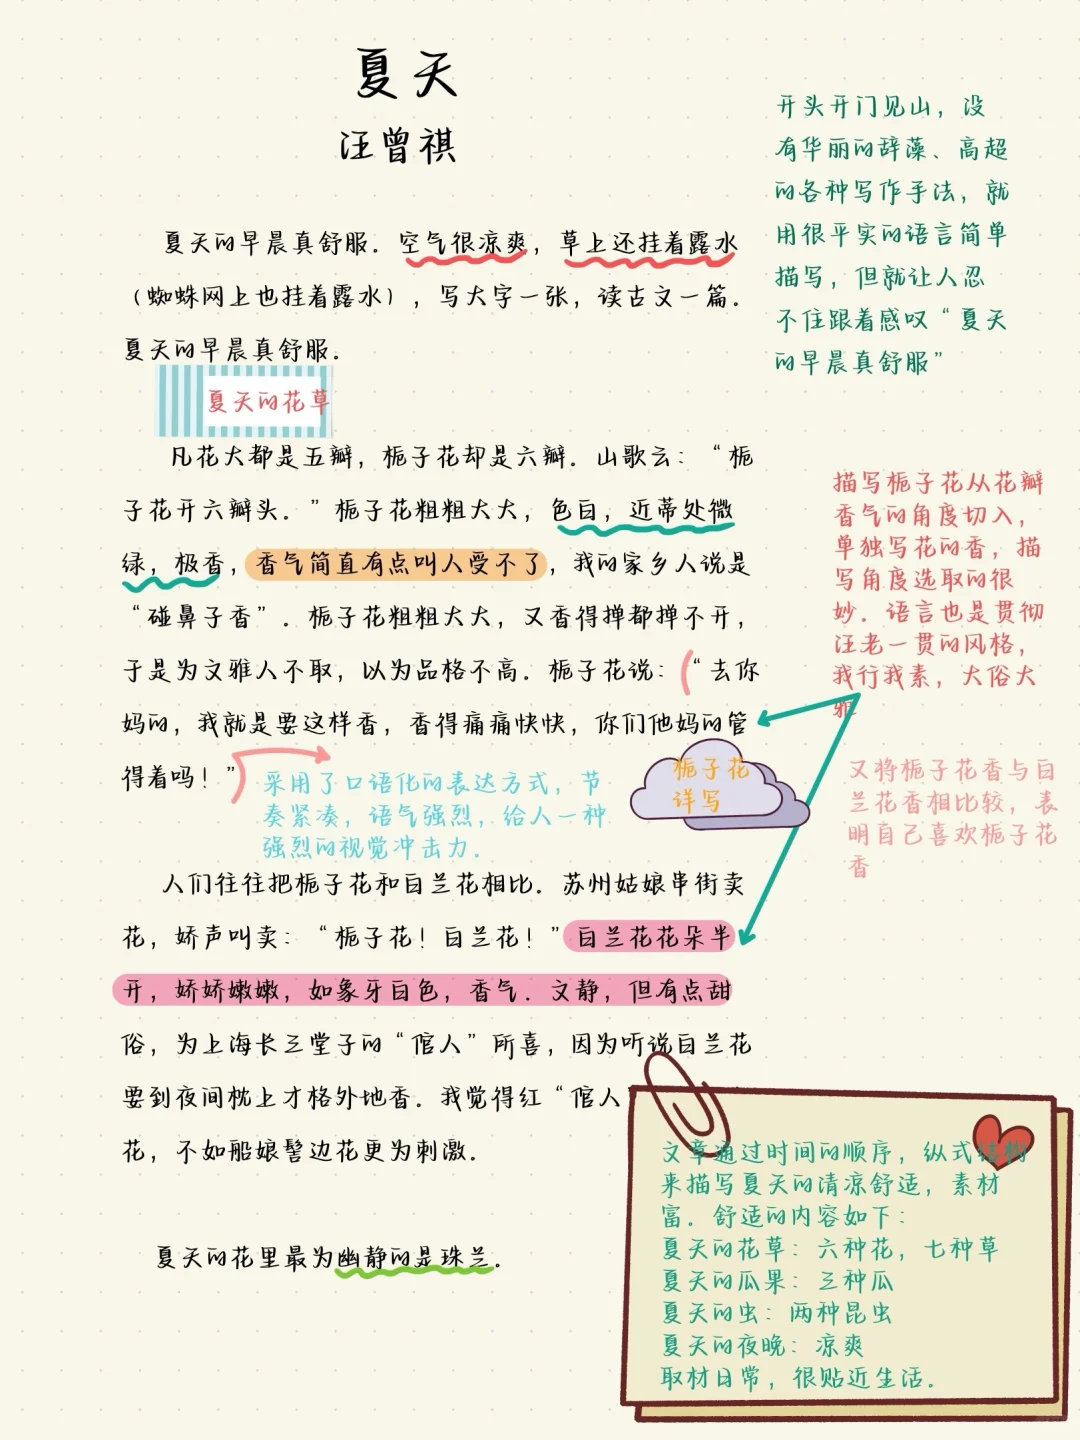 夏天
汪曾祺
夏天的早晨真舒服．空气很凉爽，草上还挂着露水
（蜘蛛网上也挂着露水），写大字一张，读古文一篇．
夏天的早晨真舒服．
开头开门见山，没
有华丽的辞藻、高超
的各种写作手法，就
用很平实的语言简单
描写，但就让人忍
不住跟着感叹“夏天
的早晨真舒服”
夏天的花草
凡花大都是五瓣，栀子花却是六瓣．山歌云：“栀
子花开六瓣头．”栀子花粗粗大大，色白，近蒂处微
绿，极香，香气简直有点叫人受不了，我的家乡人说是
“碰鼻子香”．栀子花粗粗大大，又香得掸都掸不开，
于是为文雅人不取，以为品格不高．栀子花说：“去你
妈的，我就是要这样香，香得痛痛快快，你们他妈的管
得着吗！”
描写栀子花从花瓣
香气的角度切入，
单独写花的香，描
写角度选取的很
妙．语言也是贯彻
汪老一贯的风格，
我行我素，大俗大
雅
采用了口语化的表达方式，节
奏紧凑，语气强烈，给人一种
强烈的视觉冲击力．
栀子花
详写
又将栀子花香与白
兰花香相比较，表
明自己喜欢栀子花
香
人们往往把栀子花和白兰花相比．苏州姑娘串街卖
花，娇声叫卖：“栀子花！白兰花！”白兰花花朵半
开，娇娇嫩嫩，如象牙白色，香气．文静，但有点甜
俗，为上海长三堂子的“倌人”所喜，因为听说白兰花
要到夜间枕上才格外地香．我觉得红“倌人
花，不如船娘髻边花更为刺激．
夏天的花里最为幽静的是珠兰．
文章通过时间的顺序，纵式结构
来描写夏天的清凉舒适，素材
富．舒适的内容如下：
夏天的花草：六种花，七种草
夏天的瓜果：三种瓜
夏天的虫：两种昆虫
夏天的夜晚：凉爽
取材日常，很贴近生活．